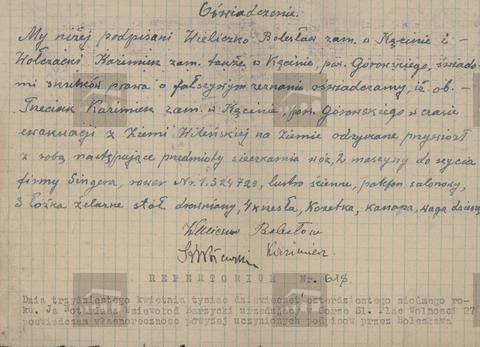 Oświadczenie.
My niżej podpisani Wieliczko Bolesław zam. w Kącinie i -
Kazimierz zam. tamże w Kącinie, pow. Górowskiego, świado-
mi skutków prawa o fałszywym zeznaniu oświadczamy, iż ob. -
Treciak Kazimierz zam. w Kącinie, pow. Górowskiego w czasie
ewakuacji z Ziemi Wileńskiej na Ziemie odzyskane przywiózł
z sobą następujące przedmioty: sieczkarnia, wóz, 2 maszyny do szycia
firmy Singera, rower Nr. 1.324729, lustro ścienne, patefon salonowy,
3 łóżka żelazne stół drewniany, 4 krzesła, Kozetka, kanapa, waga
Bolesław
Kazimierz
REPERTORIUM Nr. 618
Dnia trzydziestego kwietnia tysiąc dziewięćset czterdziestego siódmego ro-
ku. Ja Notariusz Wsiewołod Barzycki urzędujący Górze Śl. Plac Wolności 27
poświadczam własnoręczność powyżej uczynionych podpisów przez Bolesława